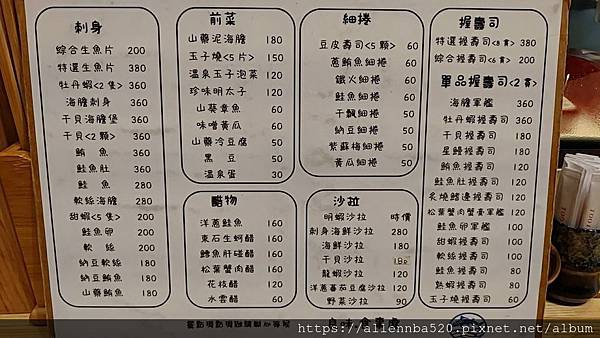 刺身
綜合生魚片 200
特選生魚片 380
牡丹蝦<2隻> 360
海膽刺身 360
干貝海膽堡 360
干貝<2顆> 360
鮪魚 360
鮭魚肚 360
鮭魚 280
軟絲海膽 280
甜蝦<5隻> 200
鮭魚卵 200
軟絲 200
納豆軟絲 180
納豆鮪魚 180
山藥鮪魚 180
前菜
山藥泥海膽 180
玉子燒<5片> 150
溫泉玉子泡菜 120
珍味明太子 120
山葵章魚 60
味噌黃瓜 60
山藥冷豆腐 50
黑豆 50
溫泉蛋 30
醋物
洋蔥鮭魚 160
東石生蚵醋 160
鱈魚肝碰醋 160
松葉蟹肉醋 160
花枝醋 120
水雲醋 60
細捲
豆皮壽司<5顆> 60
蔥鮪魚細捲 60
鐵火細捲 60
鮭魚細捲 60
干瓢細捲 50
納豆細捲 50
紫蘇梅細捲 50
黃瓜細捲 50
沙拉
明蝦沙拉 時價
刺身海鮮沙拉 280
海鮮沙拉 180
干貝沙拉
龍蝦沙拉 120
洋蔥蕃茄豆腐沙拉 120
野菜沙拉 90
握壽司
特選握壽司<8貫> 380
綜合握壽司<6貫> 200
單品握壽司<2貫>
海膽軍艦 360
牡丹蝦握壽司 360
干貝握壽司 180
星鰻握壽司 180
鮪魚握壽司 120
鮭魚肚握壽司 120
炙燒鰭邊握壽司 120
松葉蟹肉蟹膏軍艦 120
鮭魚卵軍艦 120
甜蝦握壽司 100
軟絲握壽司 100
鮭魚握壽司 80
熟蝦握壽司 80
玉子燒握壽司 60
https://allennba520.pixnet.net/album